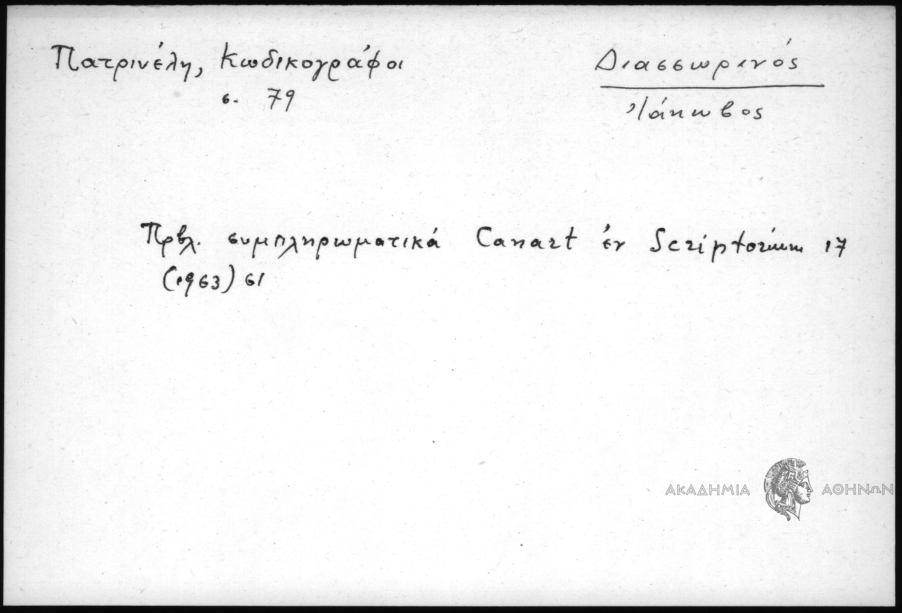 Πατρινέλη, Κωδικογράφοι
σ. 79
Διασσωρινός
Ἰάκωβος
Πρβλ. συμπληρωματικά Canart ἐν Scriptorium 17
(1963) 61
ΑΚΑΔΗΜΙΑ ΑΘΗΝΩΝ